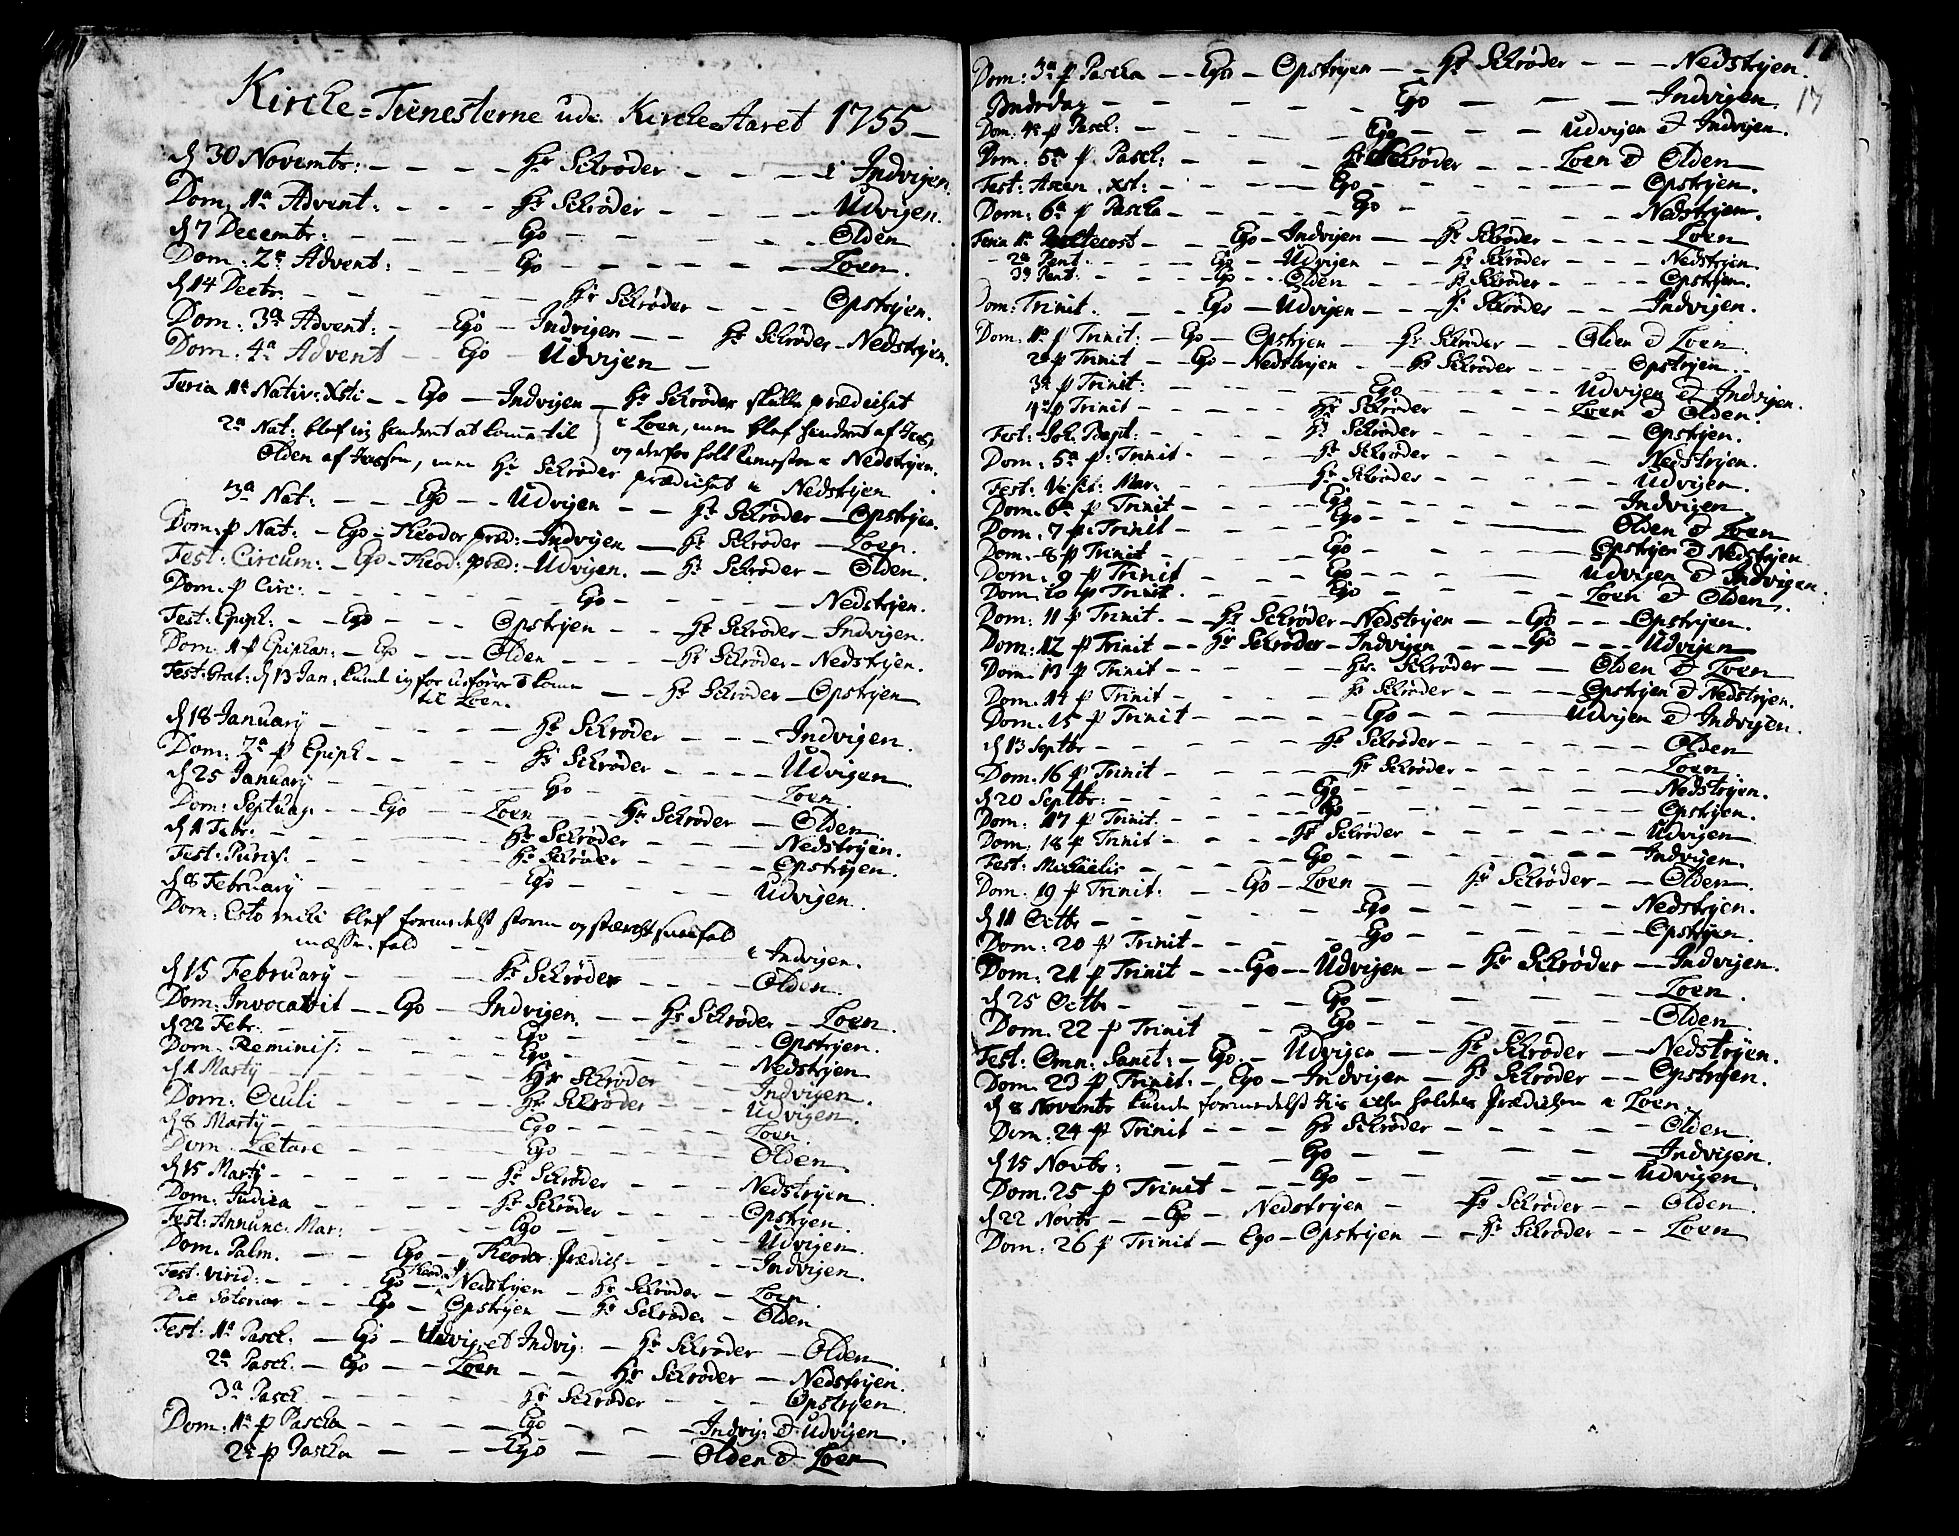 Kirche-Tienesterne udi Kirche Aaret 1755
d 30 Novembr: - - - Hr Schrøder - - - i Indvigen.
Dom: 1ma Advent: - - - Hr Schrøder - - - Udvigen.
d 7 Decembr: - - - Ego - - - Olden
Dom: 2da Advent: - - - Ego - - - Loen.
d 14 Decbr. - - - Hr Schrøder - - - Opstryen.
Dom: 3a Advent: - Ego - Indvigen - - Hr Schrøder - Nedstryen.
Dom: 4a Advent - - Ego - Udvijen -
Feria 1ma Nativ: Xsti - - Ego - Indvijen - Hr Schrøder skulle prædichet
2a Nat: blef jeg hindret at komme til i Loen, men blef hindret af
Olden af , men Hr Schrøder prædichet i Nedstryen og derfor holt tienesten i Nedstryen.
3a Nat: - - Ego - - Udvijen - - Hr Schrøder - Opstryen.
Dom: p Nat: - Ego - Theodor præd: - Indvijen - Hr Schrøder - Loen.
Fest: Circum: - Ego - Theod: præd: - Udvigen. - Hr Schrøder - Olden.
Dom: p Circ: - - - Ego - - - Nedstryen.
Fest: Epiph: - - Ego - - - Opstryen - - Hr Schrøder - Indvigen.
Dom: 1 p Epiphan: - Ego - - Olden - - - Hr Schrøder - Nedstryen.
Fest: d 13 Jan: kunde jeg for komme til Loen. - - Hr Schrøder - Opstryen
d 18 January - - - Hr Schrøder - - - Indvigen.
Dom: 2a p Epiph - - - Hr Schrøder - - - Udvigen
d 25 January - - - Ego - - - Loen.
Dom: Septuag: - - Ego - - Loen - - Hr Schrøder - Olden
d 1 Febr. - - - Hr Schrøder - - - Nedstryen.
Fest: Purif: - - - Hr Schrøder - - - Opstryen.
d 8 February - - - Ego - - - Udvigen.
Dom: Esto mihi blef formedelst storm og stærckt sneefald
mæssefald - - - i Indvigen.
d 15 February - - - Hr Schrøder - - - Olden.
Dom: Invocavit - - Ego - Indvigen. - - Hr Schrøder - Loen.
d 22 Febr: - - - Ego - - - Opstryen.
Dom. Reminis: - - - Ego - - - Nedstryen
d 1 Marty - - - Hr Schrøder - - - Indvigen.
Dom: Oculi - - - Hr Schrøder - - - Udvigen.
d 8 Marty - - - Ego - - - Loen.
Dom. Lætare - - - Ego - - - Olden.
d 15 Marty - - - Hr Schrøder - - - Nedstryen
Dom. Judica - - - Hr Schrøder - - - Opstryen.
Fest: Annunc: Mar: - - - Ego - - - Udvigen.
Dom. Palm. - - - Ego - Theodor Prædich - - - Indvigen.
Fest: virid: - - - Ego - Nedstryen - Hr Schrøder - Loen.
Die - - Ego - Opstryen - Hr Schrøder - Olden
Fest: 1ma Pasch. - Ego - Udvig: et Indvig: - Hr Schrøder - Olden.
2a Pasch. - Ego - - Loen - - - Hr Schrøder - Nedstryen.
3a Pasch - - - Hr Schrøder - - - Opstryen
Dom: 1ma p Pascha - - - Ego - - - Indvig: & Udvijen.
2a p Pascha - - - Ego - - - Olden & Loen
17
17
Dom: 3a p Pascha - - Ego - Opstryen - - Hr Schrøder - - - Nedstryen.
- - - Ego - - - Indvigen.
Dom. 4a p Pasch: - - - Ego - - - Udvijen & Indvijen.
Dom. 5a p. Pasch: - - - Hr Schrøder - - - Loen & Olden
Fest: Ascen. Xst: - - - Ego - - - Opstryen.
Dom: 6a p Pascha - - - Ego - - - Nedstryen.
Feria 1ma Pentecost - - - Ego - Indvijen - - Hr Schrøder - - - Loen
- 2a Pent: - - - Ego - Udvijen - - Hr Schrøder - - - Nedstryen.
3a Pent: - - - Ego - - Olden - - Hr Schrøder - - - Opstryen.
Dom: Trinit. - - - Ego - Udvijen - - Hr Schrøder - - - Indvigen.
Dom: 1ma p Trinit: - Ego - Opstryen - - Hr Schrøder - - Olden & Loen.
2a p Trinit - - Ego - Nedstryen - - Hr Schrøder - - - Opstryen.
3a p Trinit: - - - Ego - - - Udvijen & Indvijen.
4a p Trinit - - - Hr Schrøder - - - Loen & Olden.
Fest: Joh. Bapt: - - - Hr Schrøder - - - Opstryen.
Dom: 5a p. Trinit - - - Hr Schrøder - - - Nedstryen.
Fest: Visit: Mar. - - - Hr Schrøder - - - Udvijen.
Dom: 6a p Trinit - - - Ego - - - Indvijen.
Dom. 7 p. Trinit - - - Ego - - - Olden & Loen
Dom: 8 p Trinit - - - Ego - - - Opstryen & Nedstryen.
Dom: 9 p Trinit - - - Ego - - - Udvijen & Indvigen
Dom: 10 p Trinit. - - - Ego - - - Loen & Olden.
Dom: 11 p Trinit. - - Hr Schrøder - Nedstryen - - Ego - - - Opstryen.
Dom: 12 p Trinit - - Hr Schrøder - Indvigen - - - Ego - - - Udvijen
Dom. 13 p Trinit - - - Hr. Schrøder - - - Olden & Loen
Dom. 14 p Trinit - - - Hr Schrøder - - - Opstryen & Nedstryen.
Dom. 15 p Trinit - - - Ego - - - Udvijen & Indvigen.
d 13 Septbr - - - Hr Schrøder - - - Olden
Dom. 16 p Trinit - - - Hr Schrøder - - - Loen
d 20 Septbr: - - - Ego - - - Nedstryen.
Dom: 17 p Trinit. - - - Ego - - - Opstryen.
Dom: 18 p Trinit - - - Hr Schrøder - - - Udvijen
Fest: Michaëlis - - - Ego - - - Indvigen.
Dom. 19 p Trinit: - - Ego - Loen - - - Hr Schrøder - - Olden
d 11 Octbr - - - Ego - - - Nedstryen.
Dom: 20 p Trinit - - - Ego - - - Opstryen.
Dom: 21 p Trinit - - Ego - Udvijen - - Hr Schrøder - - Indvijen.
d 25 Octbr - - - Ego - - - Loen.
Dom: 22 p Trinit - - - Ego - - - Olden
Fest: Omn: Sanct: - Ego. - Udvijen - - Hr Schrøder - - Nedstryen.
Dom: 23 p Trinit: - Ego - Indvigen - Hr Schrøder - - Opstryen.
d 8 Novembr kunde formedelst Iis icke holdes Prædichen i Loen.
Dom: 24 p Trinit - - - Hr Schrøder - - - Olden
d 15 Novbr: - - - Ego - - - Indvigen.
Dom: 25 p Trinit - - - Ego - - - Udvigen.
d 22 Novbr - - Ego - Nedstryen - - Hr Schrøder - - Olden.
Dom: 26 p Trinit - Ego - Opstryen - - Hr Schrøder - - Loen